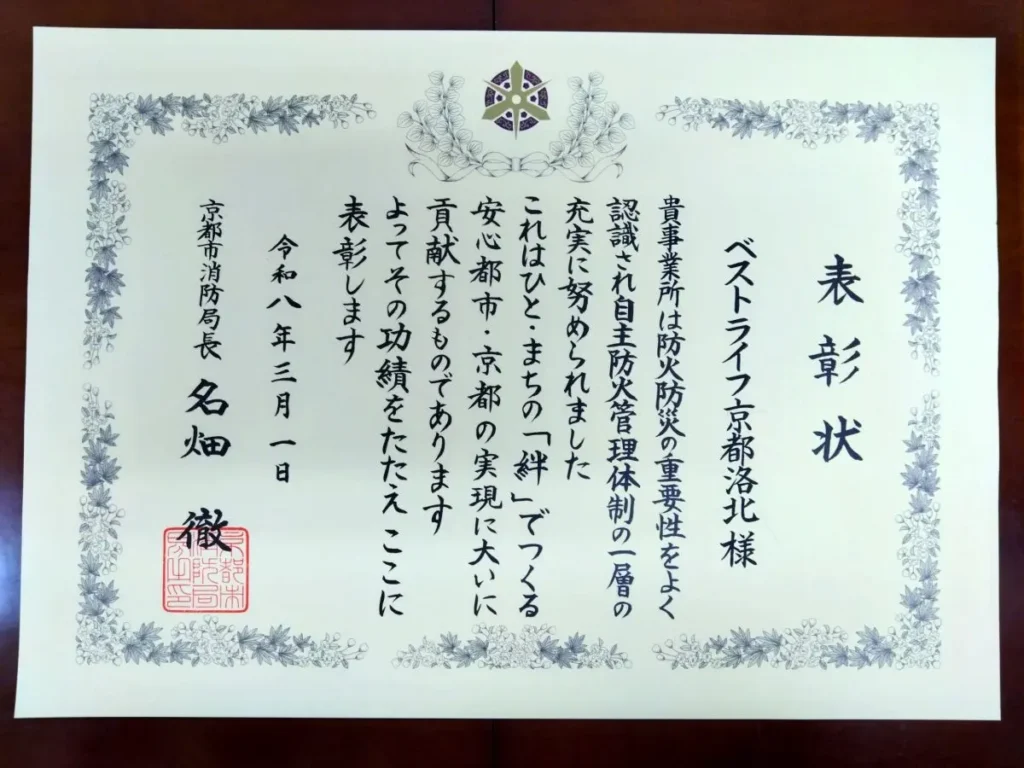 表彰状
ベストライフ京都洛北様
貴事業所は防火防災の重要性をよく
認識され自主防火管理体制の一層の
充実に努められました
これはひと・まちの「絆」でつくる
安心都市・京都の実現に大いに
貢献するものであります
よってその功績をたたえここに
表彰します
令和八年三月一日
京都市消防局長 名畑 徹